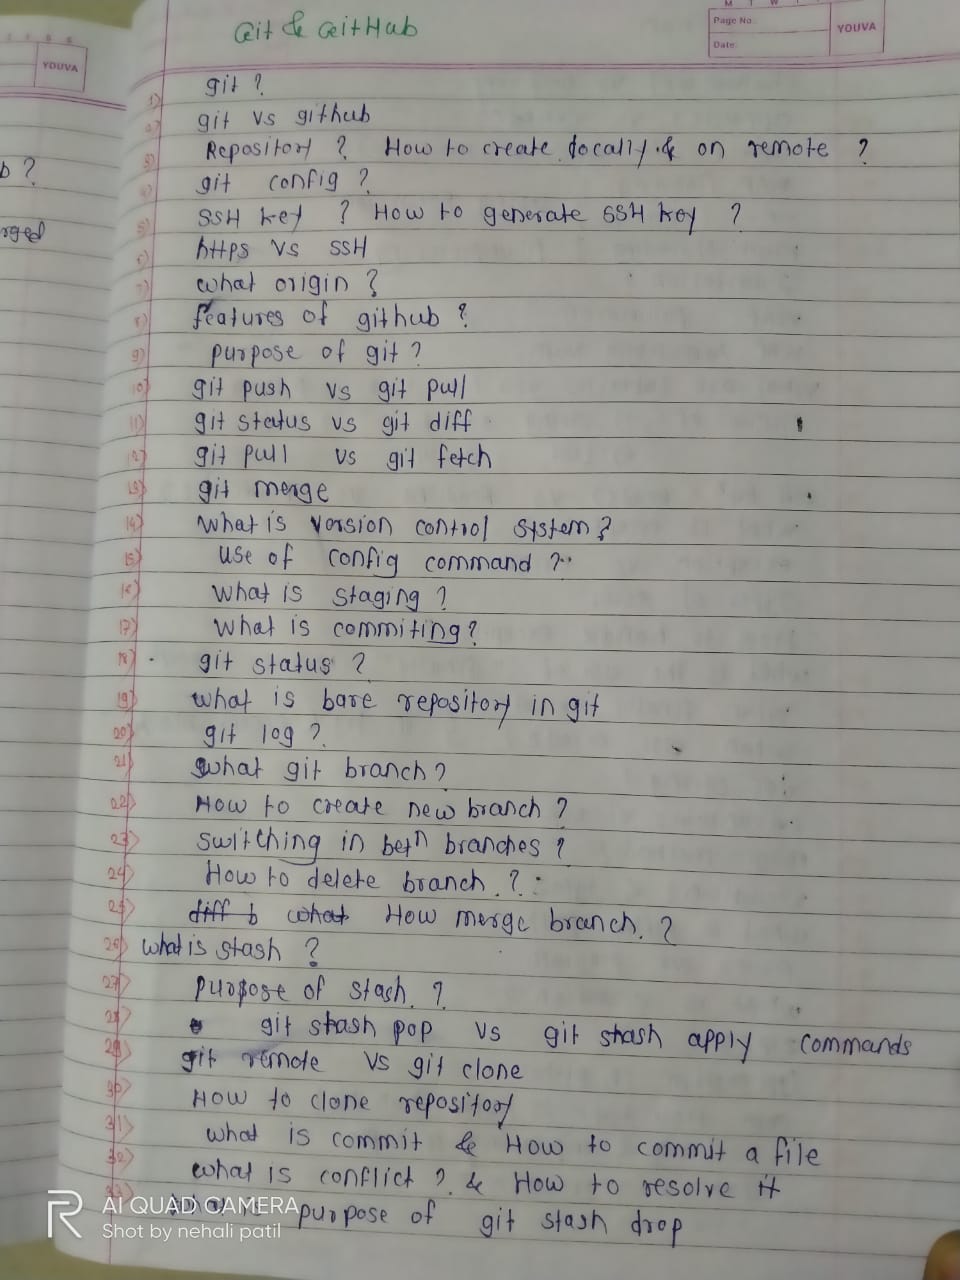 Git & GitHub
M T W T
Page No.:
Date:
YOUVA
YOUVA
b?
rged
1) git ?
2) git vs github
3) Repository ? How to create locally & on remote ?
4) git config ?
5) SSH key ? How to generate SSH key ?
6) https vs SSH
7) what origin ?
8) features of github ?
9) purpose of git ?
10) git push vs git pull
11) git status vs git diff
12) git pull vs git fetch
13) git merge
14) what is version control system ?
15) use of config command ?
16) what is staging ?
17) what is commiting ?
18) git status ?
19) what is bare repository in git
20) git log ?
21) what git branch ?
22) How to create new branch ?
23) switching in betn branches ?
24) How to delete branch ?
25) diff b what How merge branch. ?
26) what is stash ?
27) purpose of stash ?
28) git stash pop vs git stash apply commands
29) git remote vs git clone
30) How to clone repository
31) what is commit & How to commit a file
32) what is conflict ? & How to resolve it
33) what is purpose of git stash drop
R
AI QUAD CAMERA
Shot by nehali patil